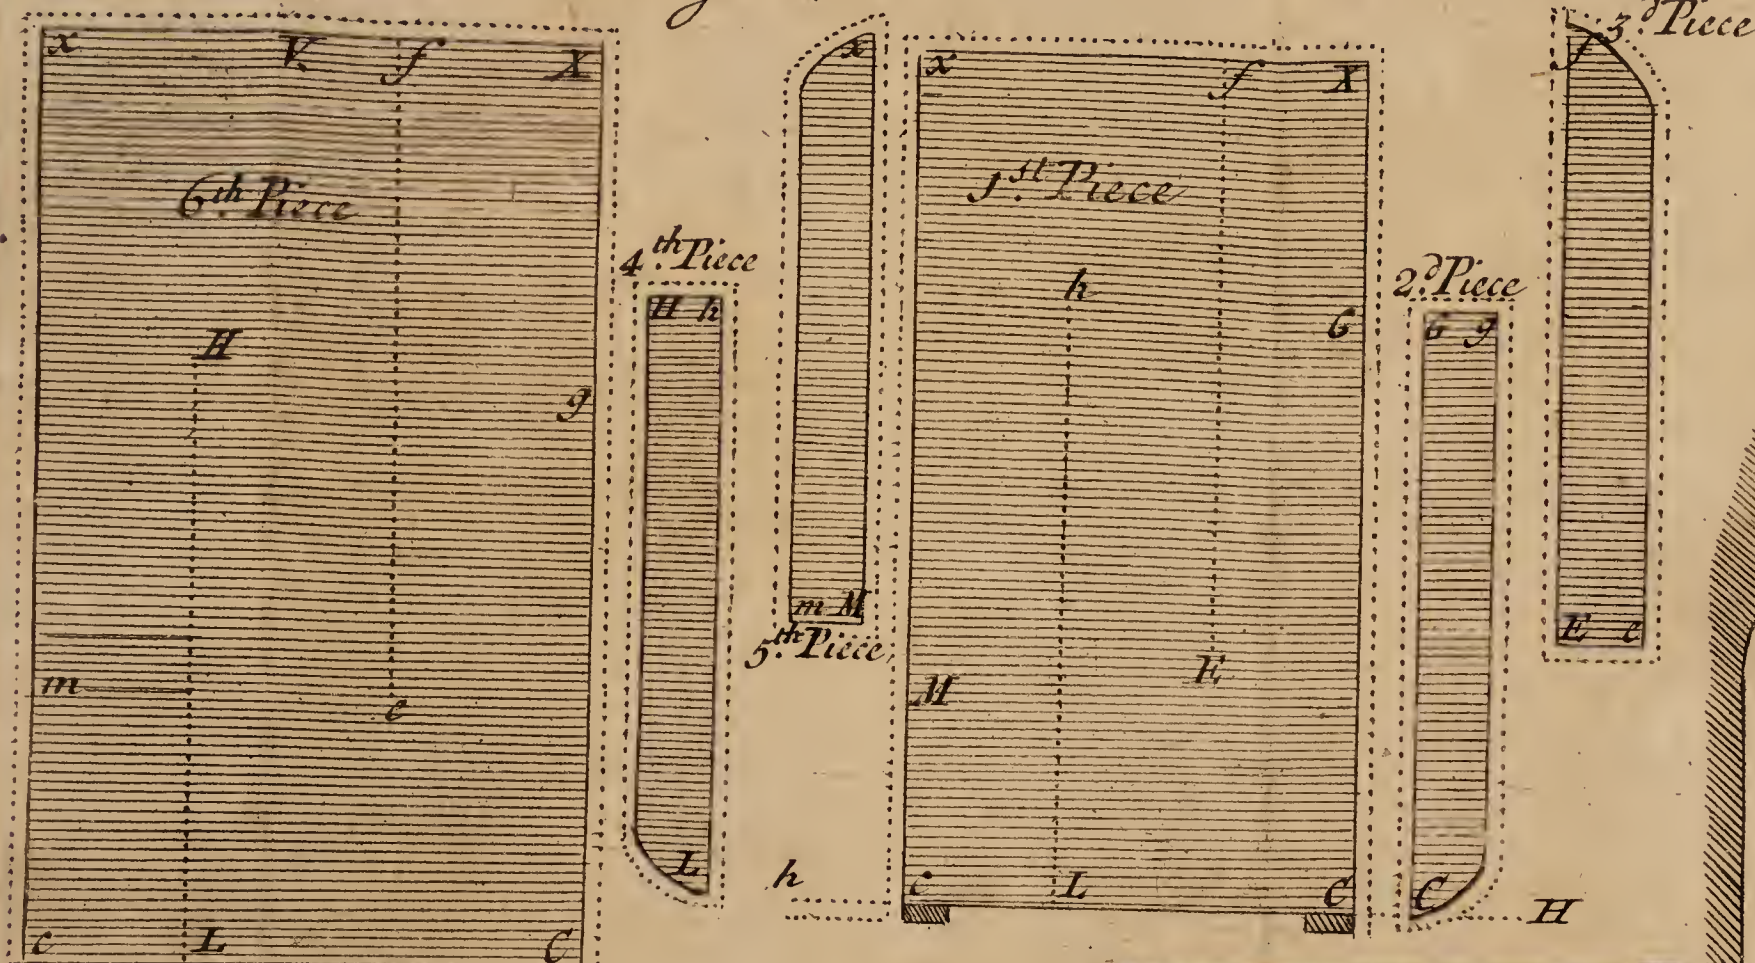 x V. f X
6.th Piece
H
g
m
e
c L C
4.th Piece
H h
L
x
m M
5.th Piece
x f X
1.st Piece
h
G
E
M
c L C
h
H
2.d Piece
G g
C
3.d Piece
f
E e